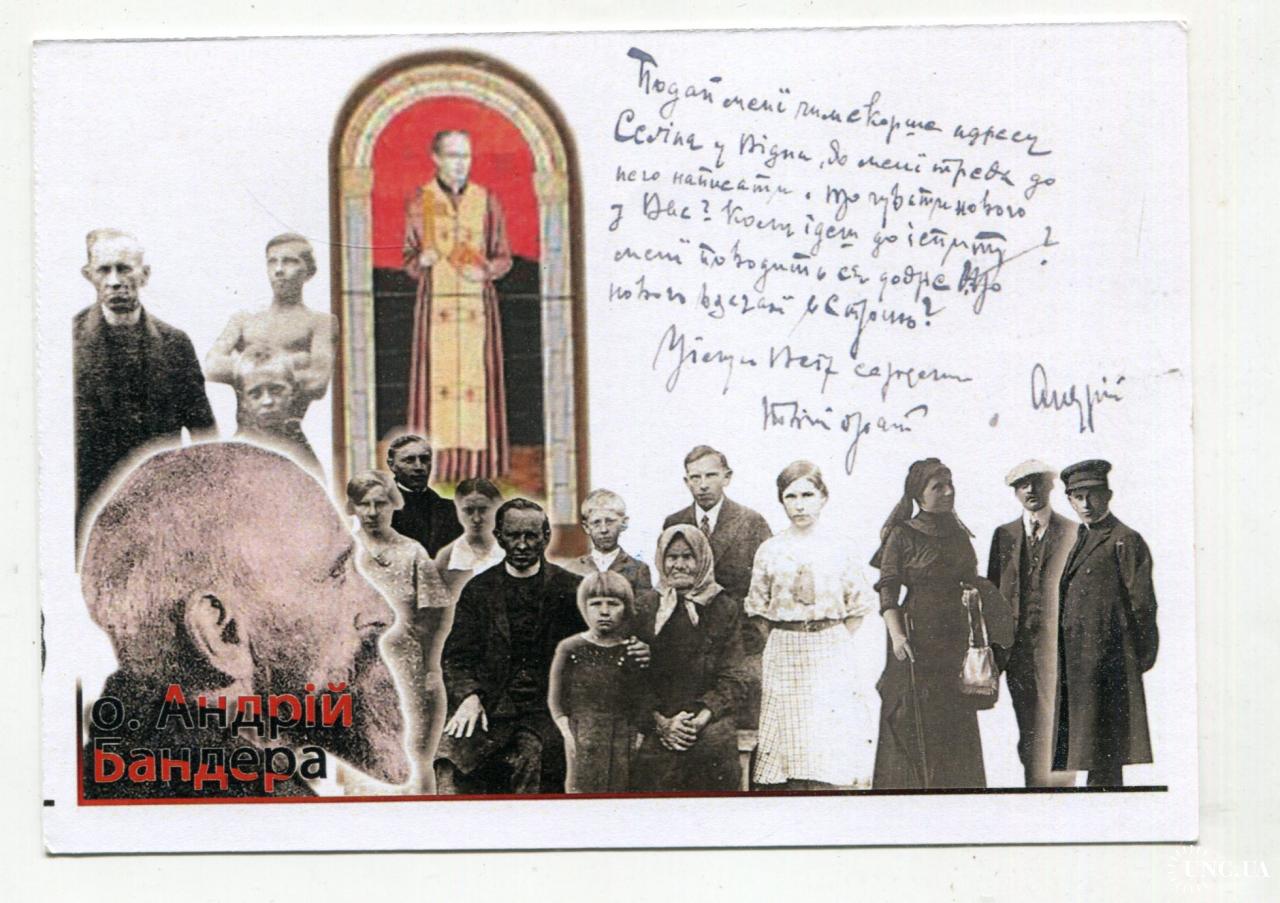 Подай мені чим скорше адресу
у Відни, бо мені треба до
него написати. Що чувати нового
у Вас? Коли ідеш до іспиту?
мені поводить ся добре Що
нового в Стрию?
Цілую Всіх сердечно
Твій брат
Андрій
о. Андрій
Бандера
UNC.UA